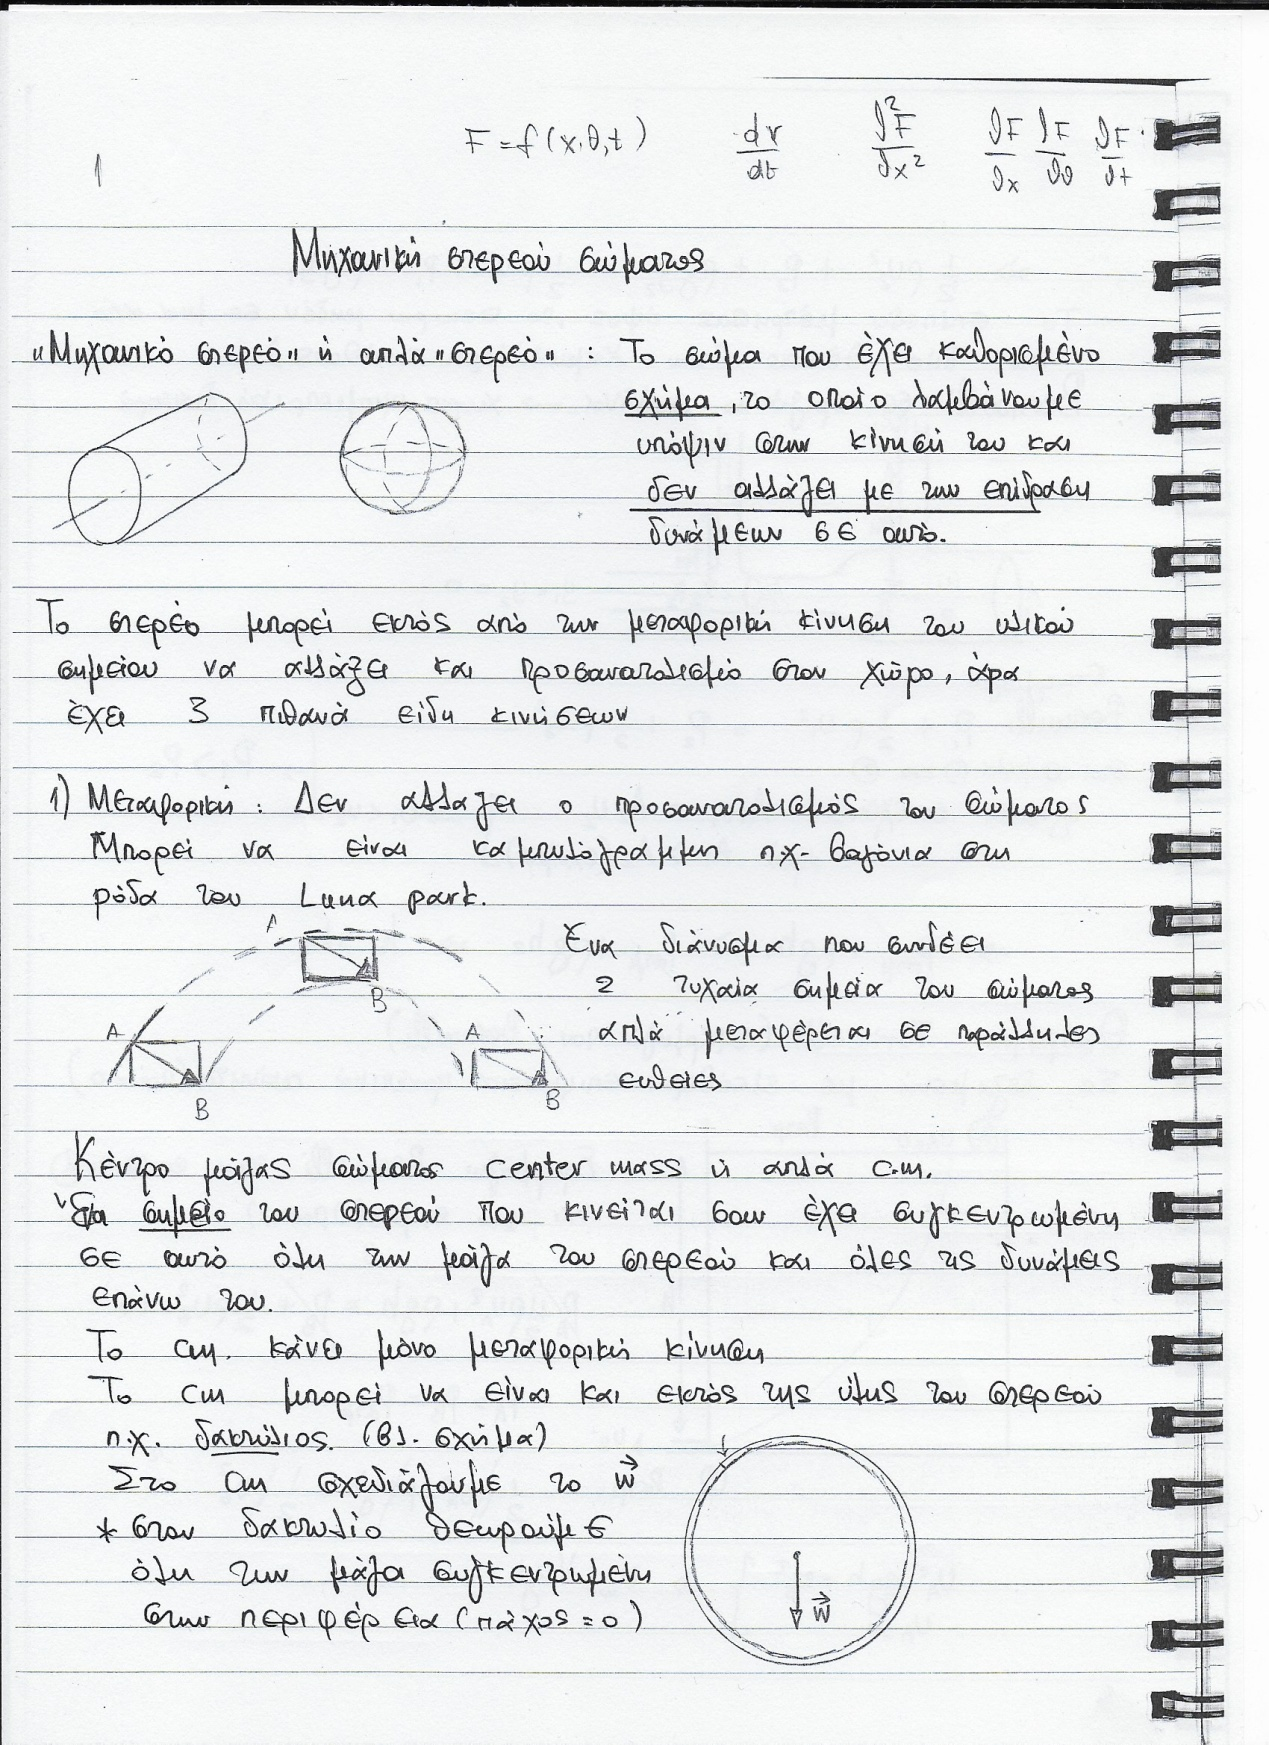 F = f(x,θ,t) dr/dt ∂²F/∂x² ∂F/∂x ∂F/∂θ ∂F/∂t
1
Μηχανική στερεού σώματος
"Μηχανικό στερεό" ή απλά "στερεό" : Το σώμα που έχει καθορισμένο
σχήμα, το οποίο λαμβάνουμε
υπόψιν στην κίνησή του και
δεν αλλάζει με την επίδραση
δυνάμεων σε αυτό.
Το στερεό μπορεί εκτός από την μεταφορική κίνηση του υλικού
σημείου να αλλάζει και προσανατολισμό στον χώρο, άρα
έχει 3 πιθανά είδη κινήσεων
1) Μεταφορική : Δεν αλλάζει ο προσανατολισμός του σώματος
Μπορεί να είναι καμπυλόγραμμη π.χ- βαγόνια στη
ρόδα του Luna park.
Ένα διάνυσμα που συνδέει
2 τυχαία σημεία του σώματος
απλά μεταφέρεται σε παράλληλες
ευθείες
A
B
A
B
A
B
Κέντρο μάζας σώματος center mass ή απλά c.m.
Ένα σημείο του στερεού που κινείται σαν έχει συγκεντρωμένη
σε αυτό όλη την μάζα του στερεού και όλες τις δυνάμεις
επάνω του.
Το cm. κάνει μόνο μεταφορική κίνηση
Το cm μπορεί να είναι και εκτός της ύλης του στερεού
π.χ. δακτύλιος. (βλ. σχήμα)
Στο cm σχεδιάζουμε το w⃗
* στον δακτυλίο θεωρούμε
όλη την μάζα συγκεντρωμένη
στην περιφέρεια (πάχος = 0)
w⃗